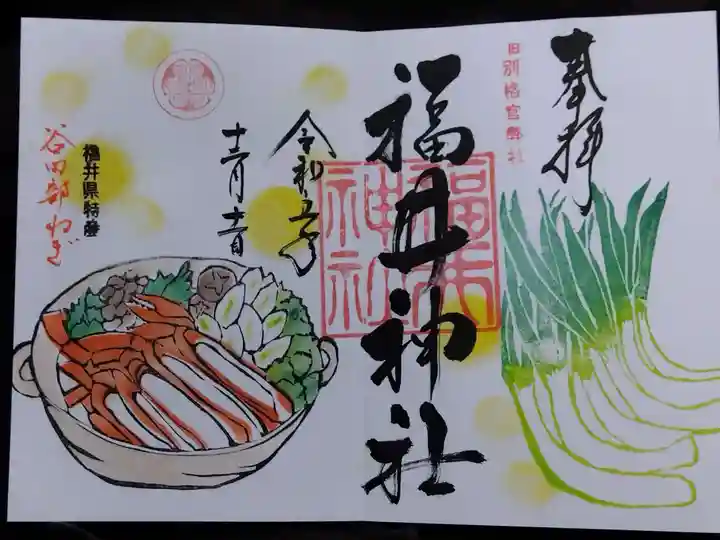 奉拝
旧別格官幣社
福井神社
福井
神社
令和五年
十二月十一日
福井県特産
谷田部ねぎ